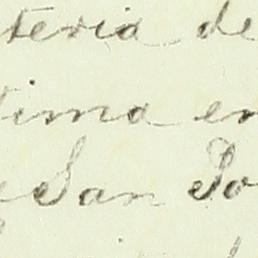 teria de
tima en
San Po